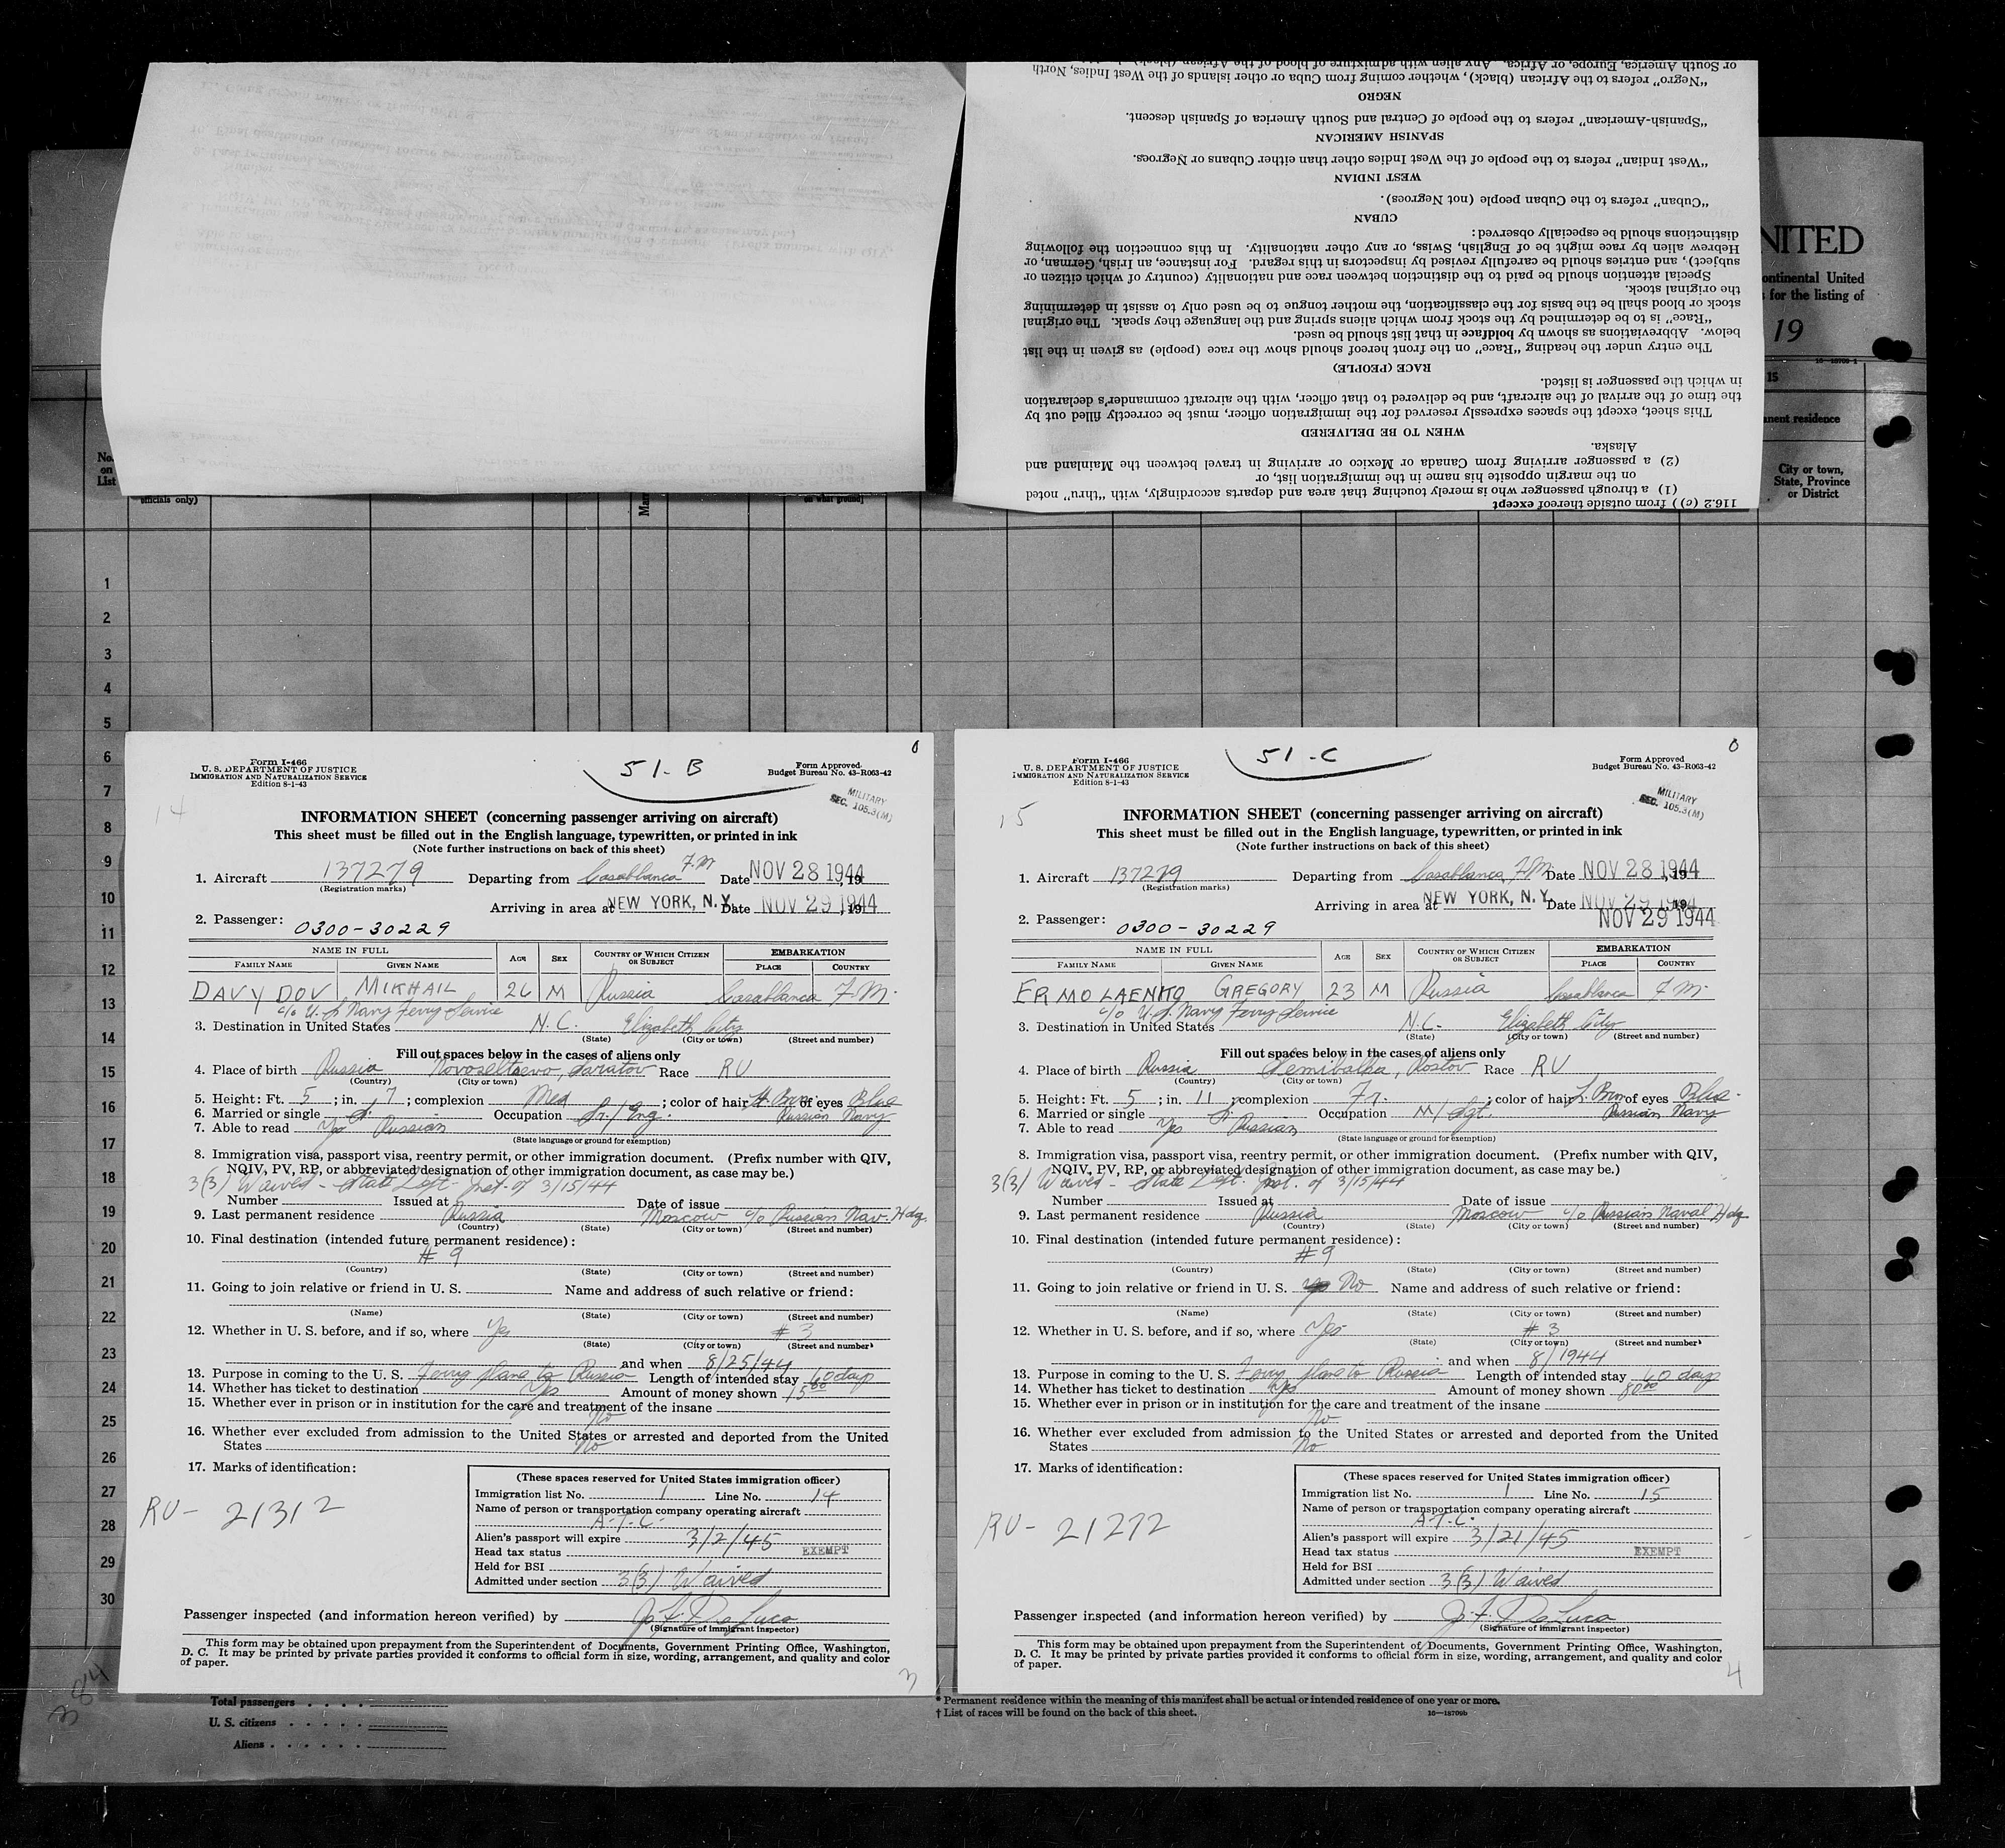 or South America, Europe, or Africa. Any alien with admixture of blood of the African (black)
"Negro" refers to the African (black), whether coming from Cuba or other islands of the West Indies, North
NEGRO
"Spanish-American" refers to the people of Central and South America of Spanish descent.
SPANISH AMERICAN
"West Indian" refers to the people of the West Indies other than either Cubans or Negroes.
WEST INDIAN
"Cuban" refers to the Cuban people (not Negroes).
CUBAN
distinctions should be especially observed:
Hebrew alien by race might be of English, Swiss, or any other nationality. In this connection the following
subject), and entries should be carefully revised by inspectors in this regard. For instance, an Irish, German, or
Special attention should be paid to the distinction between race and nationality (country of which citizen or
the original stock.
stock or blood shall be the basis for the classification, the mother tongue to be used only to assist in determining
"Race" is to be determined by the stock from which aliens spring and the language they speak. The original
below. Abbreviations as shown by boldface in that list should be used.
The entry under the heading "Race" on the front hereof should show the race (people) as given in the list
RACE (PEOPLE)
in which the passenger is listed.
the time of the arrival of the aircraft, and be delivered to that officer, with the aircraft commander's declaration
This sheet, except the spaces expressly reserved for the immigration officer, must be correctly filled out by
WHEN TO BE DELIVERED
Alaska.
(2) a passenger arriving from Canada or Mexico or arriving in travel between the Mainland and
on the margin opposite his name in the immigration list, or
(1) a through passenger who is merely touching that area and departs accordingly, with "thru" noted
116.2 (c)) from outside thereof except
NITED
ontinental United
for the listing of
19
16—18709-1
15
anent residence
City or town,
State, Province
or District
No.
on
List
officials only)
Mar
on what ground]
1
2
3
4
5
6
7
8
9
10
11
12
13
14
15
16
17
18
19
20
21
22
23
24
25
26
27
28
29
30
Form I-466
U. S. DEPARTMENT OF JUSTICE
IMMIGRATION AND NATURALIZATION SERVICE
Edition 8-1-43
51-B
0
Form Approved
Budget Bureau No. 43-R063-42
MILITARY
SEC. 105.3(M)
14
INFORMATION SHEET (concerning passenger arriving on aircraft)
This sheet must be filled out in the English language, typewritten, or printed in ink
(Note further instructions on back of this sheet)
1. Aircraft 137279 Departing from Casablanca F.M Date NOV 28 1944, 19
(Registration marks)
Arriving in area at NEW YORK, N.Y. Date NOV 29 1944, 19
2. Passenger: 0300-30229
NAME IN FULL AGE SEX COUNTRY OF WHICH CITIZEN OR SUBJECT EMBARKATION
FAMILY NAME GIVEN NAME PLACE COUNTRY
DAVYDOV MIKHAIL 26 M Russia Casablanca F.M.
c/o U.S Navy Ferry Service
3. Destination in United States N.C. Elizabeth City
(State) (City or town) (Street and number)
Fill out spaces below in the cases of aliens only
4. Place of birth Russia Saratov Race RU
(Country) (City or town)
5. Height: Ft. 5; in. 7; complexion Med; color of hair Lt. Brn of eyes Blue
6. Married or single S. Occupation Russian Navy
7. Able to read Yes Russian
(State language or ground for exemption)
8. Immigration visa, passport visa, reentry permit, or other immigration document. (Prefix number with QIV,
NQIV, PV, RP, or abbreviated designation of other immigration document, as case may be.)
3(3) Waived - State Dept. Inst. of 3/15/44
Number Issued at Date of issue
9. Last permanent residence Russia Moscow c/o Russian Nav. Hdq.
(Country) (State) (City or town) (Street and number)
10. Final destination (intended future permanent residence):
# 9
(Country) (State) (City or town) (Street and number)
11. Going to join relative or friend in U. S. Name and address of such relative or friend:
(Name) (State) (City or town) (Street and number)
12. Whether in U. S. before, and if so, where Yes # 3
(State) (City or town) (Street and number)
and when 8/25/44
13. Purpose in coming to the U. S. Ferry plane to Russia Length of intended stay 60 days
14. Whether has ticket to destination Yes Amount of money shown 15.00
15. Whether ever in prison or in institution for the care and treatment of the insane
No
16. Whether ever excluded from admission to the United States or arrested and deported from the United
States No
17. Marks of identification:
RU- 21312
(These spaces reserved for United States immigration officer)
Immigration list No. 1 Line No. 14
Name of person or transportation company operating aircraft
A.T.C.
Alien's passport will expire 3/2/45
Head tax status EXEMPT
Held for BSI
Admitted under section 3(3) Waived
Passenger inspected (and information hereon verified) by J. F. DeLuca
(Signature of immigrant inspector)
This form may be obtained upon prepayment from the Superintendent of Documents, Government Printing Office, Washington,
D. C. It may be printed by private parties provided it conforms to official form in size, wording, arrangement, and quality and color
of paper.
3
Form I-466
U. S. DEPARTMENT OF JUSTICE
IMMIGRATION AND NATURALIZATION SERVICE
Edition 8-1-43
51-C
0
Form Approved
Budget Bureau No. 43-R063-42
MILITARY
SEC. 105.3(M)
15
INFORMATION SHEET (concerning passenger arriving on aircraft)
This sheet must be filled out in the English language, typewritten, or printed in ink
(Note further instructions on back of this sheet)
1. Aircraft 137279 Departing from Casablanca, F.M. Date NOV 28 1944, 19
(Registration marks)
Arriving in area at NEW YORK, N.Y. Date NOV 29 1944, 19
NOV 29 1944
2. Passenger: 0300-30229
NAME IN FULL AGE SEX COUNTRY OF WHICH CITIZEN OR SUBJECT EMBARKATION
FAMILY NAME GIVEN NAME PLACE COUNTRY
ERMOLAENKO GREGORY 23 M Russia Casablanca F.M.
c/o U.S. Navy Ferry Service
3. Destination in United States N.C. Elizabeth City
(State) (City or town) (Street and number)
Fill out spaces below in the cases of aliens only
4. Place of birth Russia Semibalka, Rostov Race RU
(Country) (City or town)
5. Height: Ft. 5; in. 11; complexion Fr.; color of hair L. Brn of eyes Blue
6. Married or single S. Occupation M/Sgt. Russian Navy
7. Able to read Yes Russian
(State language or ground for exemption)
8. Immigration visa, passport visa, reentry permit, or other immigration document. (Prefix number with QIV,
NQIV, PV, RP, or abbreviated designation of other immigration document, as case may be.)
3(3) Waived - State Dept. Inst. of 3/15/44
Number Issued at Date of issue
9. Last permanent residence Russia Moscow c/o Russian Naval Hdq
(Country) (State) (City or town) (Street and number)
10. Final destination (intended future permanent residence):
# 9
(Country) (State) (City or town) (Street and number)
11. Going to join relative or friend in U. S. No Name and address of such relative or friend:
(Name) (State) (City or town) (Street and number)
12. Whether in U. S. before, and if so, where Yes # 3
(State) (City or town) (Street and number)
and when 8/1944
13. Purpose in coming to the U. S. Ferry plane to Russia Length of intended stay 60 days
14. Whether has ticket to destination Yes Amount of money shown 80.00
15. Whether ever in prison or in institution for the care and treatment of the insane
No
16. Whether ever excluded from admission to the United States or arrested and deported from the United
States No
17. Marks of identification:
RU- 21272
(These spaces reserved for United States immigration officer)
Immigration list No. 1 Line No. 15
Name of person or transportation company operating aircraft
A.T.C.
Alien's passport will expire 3/21/45
Head tax status EXEMPT
Held for BSI
Admitted under section 3(3) Waived
Passenger inspected (and information hereon verified) by J. F. DeLuca
(Signature of immigrant inspector)
This form may be obtained upon prepayment from the Superintendent of Documents, Government Printing Office, Washington,
D. C. It may be printed by private parties provided it conforms to official form in size, wording, arrangement, and quality and color
of paper.
4
384
Total passengers
U. S. citizens
Aliens
* Permanent residence within the meaning of this manifest shall be actual or intended residence of one year or more.
† List of races will be found on the back of this sheet.
16—18709b